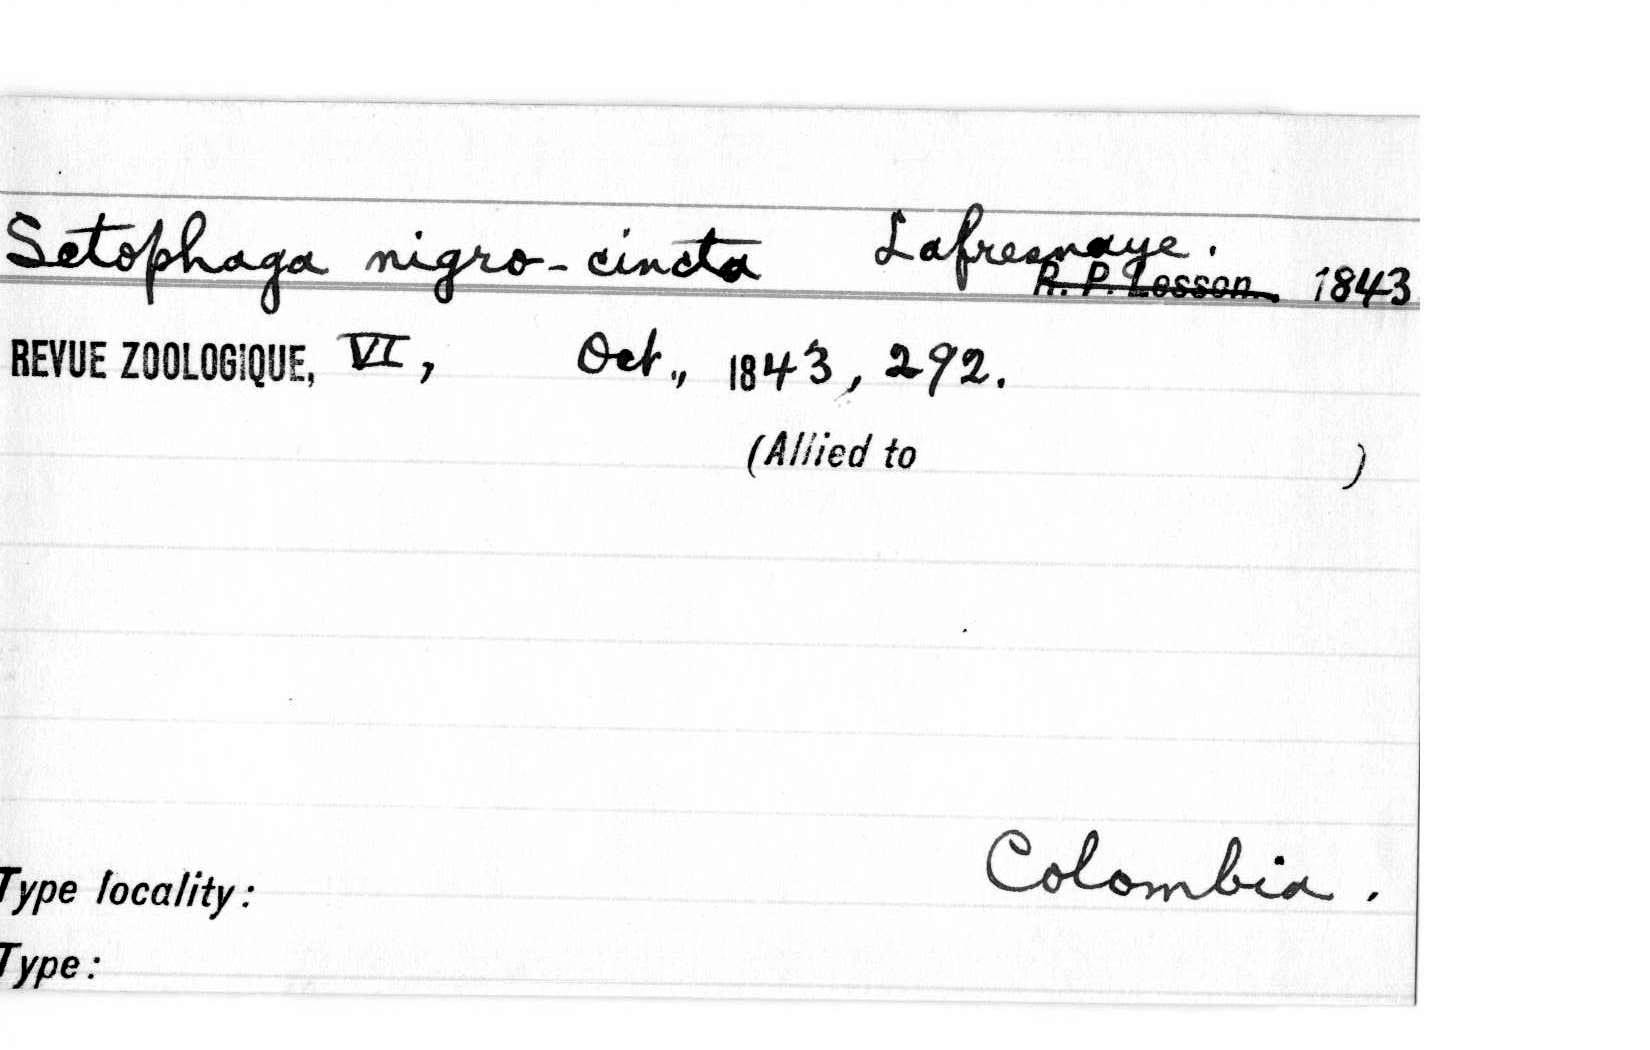 Setophaga nigro-cincta Lafresnaye.
R. P. Lesson. 1843
REVUE ZOOLOGIQUE, VI, Oct., 1843, 292.
(Allied to )
Colombia.
Type locality:
Type: